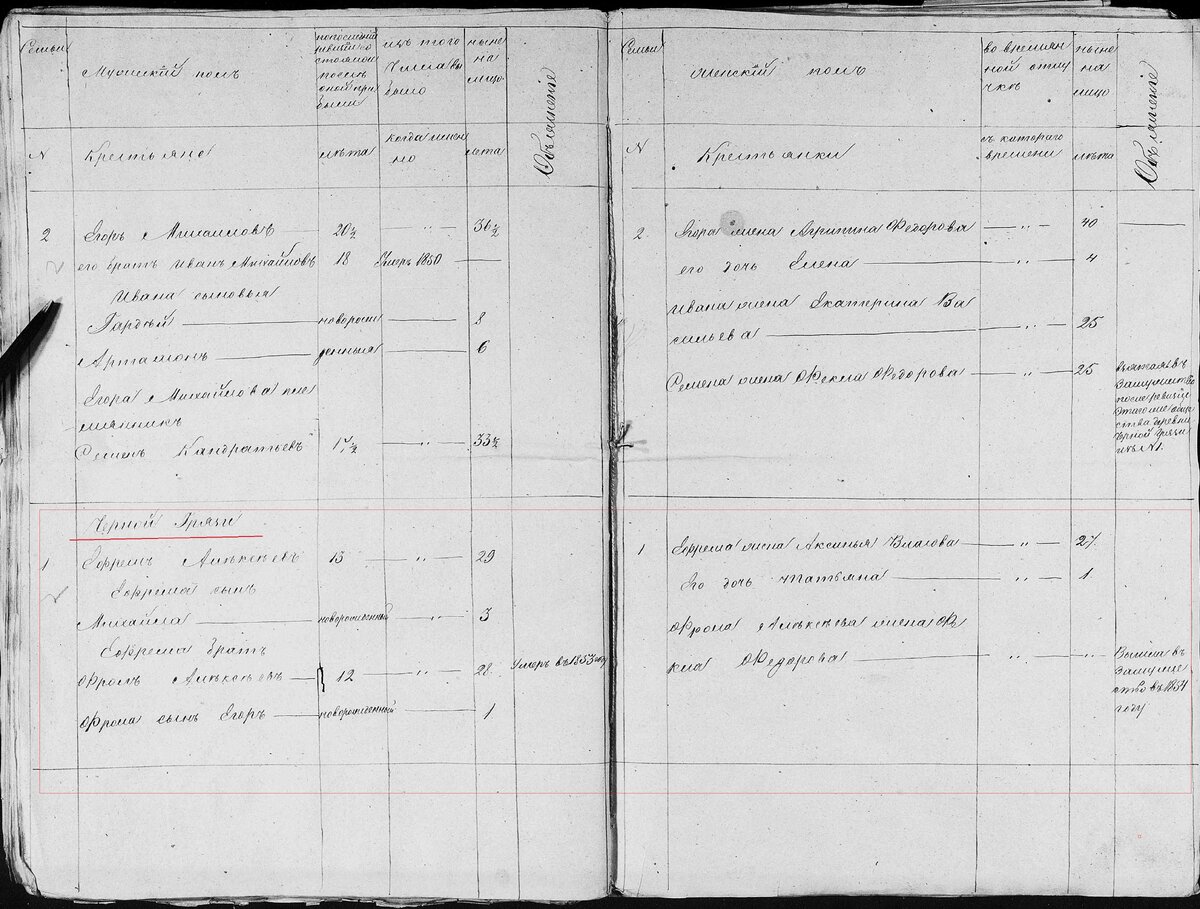 Семьи
Мужеский полъ
по последней ревизии состояло и после оной прибыло
изъ того числа выбыло
ныне на лицо
Объяснение
N
Крестьяне
лѣта
когда именно
лета
2 Егоръ Михаиловъ 20½ " 36½
его братъ Иванъ Михайловъ 18 Умеръ 1850
Ивана сыновья
Гардѣй новорож 8
Артамонъ денныя 6
Егора Михайлова пле
мянникъ
Семенъ Кандратьевъ 17½ " 33½
Черной Грязи
1 Ефремъ Алексѣевъ 13 " 29
Ефрема сынъ
Михайла новорожденный " 3
Ефрема братъ
Фролъ Алексѣевъ 12 " 28 Умеръ въ 1857 году
Фрола сынъ Егоръ новорожденный 1
Семьи
Женскій полъ
во времян
ной отлу
чкѣ
ныне
на
лицо
Объяснение
N
Крестьянки
съ катораго
времени
лѣта
2. Егора жена Агрипина Федорова " 40
его дочь Елена " 4
Ивана жена Екатерина Ва
сильева " 25
Семена жена Фекла Федорова " 25 взятая въ
Замужество
после ревизіи
этого же обще
ства деревни
Черной Грязи
изъ N1.
1 Ефрема жена Аксинья Власова " 27
Его дочь Татьяна " 1.
Фрола Алексѣева жена Фе
кла Федорова " " Вышла въ
Замуже
ство въ 1854
году